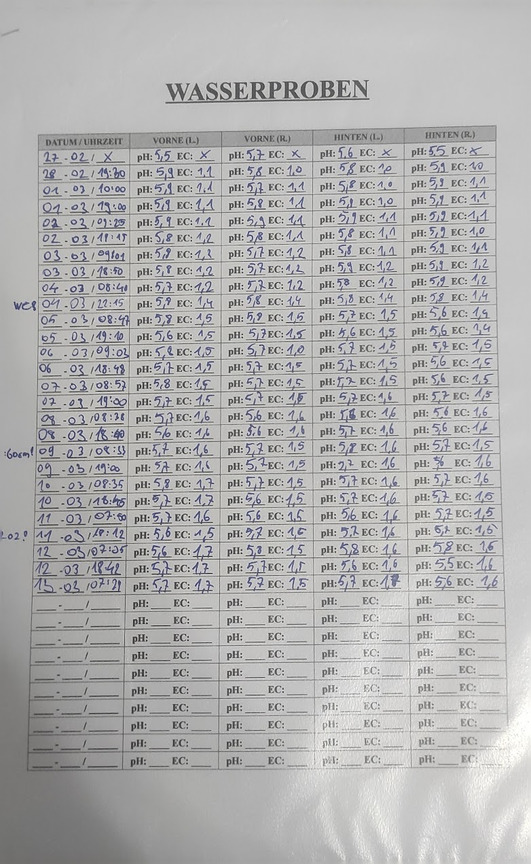 WASSERPROBEN
DATUM / UHRZEIT VORNE (L.) VORNE (R.) HINTEN (L.) HINTEN (R.)
27-02/ X pH: 5,5 EC: X pH: 5,7 EC: X pH: 5,6 EC: X pH: 5,5 EC: X
28-02/19:30 pH: 5,9 EC: 1,1 pH: 5,8 EC: 1,0 pH: 5,8 EC: 1,0 pH: 5,9 EC: 1,0
01-03/10:00 pH: 5,9 EC: 1,1 pH: 5,7 EC: 1,1 pH: 5,8 EC: 1,0 pH: 5,9 EC: 1,1
01-03/19:00 pH: 5,9 EC: 1,1 pH: 5,8 EC: 1,1 pH: 5,9 EC: 1,0 pH: 5,9 EC: 1,1
02-03/09:25 pH: 5,9 EC: 1,1 pH: 5,9 EC: 1,1 pH: 5,9 EC: 1,1 pH: 5,9 EC: 1,1
02-03/19:15 pH: 5,8 EC: 1,2 pH: 5,8 EC: 1,1 pH: 5,8 EC: 1,1 pH: 5,9 EC: 1,0
03-03/09:01 pH: 5,8 EC: 1,2 pH: 5,7 EC: 1,2 pH: 5,8 EC: 1,1 pH: 5,9 EC: 1,1
03-03/18:50 pH: 5,8 EC: 1,2 pH: 5,7 EC: 1,2 pH: 5,9 EC: 1,2 pH: 5,9 EC: 1,2
04-03/08:40 pH: 5,7 EC: 1,2 pH: 5,7 EC: 1,2 pH: EC: 1,2 pH: 5,9 EC: 1,2
04-03/22:15 pH: 5,9 EC: 1,4 pH: 5,8 EC: 1,4 pH: 5,8 EC: 1,4 pH: 5,8 EC: 1,4
05-03/08:47 pH: 5,8 EC: 1,5 pH: 5,8 EC: 1,5 pH: 5,7 EC: 1,5 pH: 5,6 EC: 1,4
05-03/19:10 pH: 5,6 EC: 1,5 pH: 5,7 EC: 1,5 pH: 5,6 EC: 1,5 pH: 5,6 EC: 1,4
06-03/09:03 pH: 5,8 EC: 1,5 pH: 5,7 EC: 1,0 pH: 5,7 EC: 1,5 pH: 5,7 EC: 1,5
06-03/18:48 pH: 5,7 EC: 1,5 pH: 5,7 EC: 1,5 pH: 5,7 EC: 1,5 pH: 5,6 EC: 1,5
07-03/08:57 pH: 5,8 EC: 1,5 pH: 5,7 EC: 1,5 pH: EC: 1,5 pH: 5,6 EC: 1,5
07-03/19:00 pH: 5,7 EC: 1,5 pH: 5,7 EC: 1,5 pH: 5,7 EC: 1,6 pH: 5,7 EC: 1,5
08-03/08:28 pH: 5,7 EC: 1,6 pH: 5,6 EC: 1,6 pH: EC: 1,6 pH: 5,6 EC: 1,6
08-03/ pH: 5,6 EC: 1,6 pH: 5,6 EC: 1,6 pH: 5,7 EC: 1,6 pH: 5,6 EC: 1,6
:60cm! 09-03/08:33 pH: 5,7 EC: 1,6 pH: 5,7 EC: 1,5 pH: 5,8 EC: 1,6 pH: 5,7 EC: 1,5
09-03/19:00 pH: 5,7 EC: 1,6 pH: 5,7 EC: 1,5 pH: EC: 1,6 pH: EC: 1,6
10-03/08:35 pH: 5,8 EC: 1,7 pH: 5,7 EC: 1,5 pH: 5,7 EC: 1,6 pH: 5,7 EC: 1,6
10-03/18:45 pH: 5,7 EC: 1,7 pH: 5,6 EC: 1,5 pH: 5,7 EC: 1,6 pH: 5,7 EC: 1,5
11-03/07:50 pH: 5,7 EC: 1,6 pH: 5,6 EC: 1,5 pH: 5,6 EC: 1,6 pH: 5,7 EC: 1,5
11-03/18:12 pH: 5,6 EC: 1,5 pH: 5,7 EC: 1,5 pH: 5,7 EC: 1,6 pH: 5,7 EC: 1,5
12-03/07:05 pH: 5,6 EC: 1,7 pH: 5,8 EC: 1,5 pH: 5,8 EC: 1,6 pH: 5,8 EC: 1,6
12-03/18:42 pH: 5,7 EC: 1,7 pH: 5,7 EC: 1,5 pH: 5,6 EC: 1,6 pH: 5,5 EC: 1,6
13-03/07:21 pH: 5,7 EC: 1,7 pH: 5,7 EC: 1,5 pH: 5,7 EC: pH: 5,6 EC: 1,6
___-___/___ pH:___ EC:___ pH:___ EC:___ pH:___ EC:___ pH:___ EC:___
___-___/___ pH:___ EC:___ pH:___ EC:___ pH:___ EC:___ pH:___ EC:___
___-___/___ pH:___ EC:___ pH:___ EC:___ pH:___ EC:___ pH:___ EC:___
___-___/___ pH:___ EC:___ pH:___ EC:___ pH:___ EC:___ pH:___ EC:___
___-___/___ pH:___ EC:___ pH:___ EC:___ pH:___ EC:___ pH:___ EC:___
___-___/___ pH:___ EC:___ pH:___ EC:___ pH:___ EC:___ pH:___ EC:___
___-___/___ pH:___ EC:___ pH:___ EC:___ pH:___ EC:___ pH:___ EC:___
___-___/___ pH:___ EC:___ pH:___ EC:___ pH:___ EC:___ pH:___ EC:___
___-___/___ pH:___ EC:___ pH:___ EC:___ pH:___ EC:___ pH:___ EC:___
___-___/___ pH:___ EC:___ pH:___ EC:___ pH:___ EC:___ pH:___ EC:___